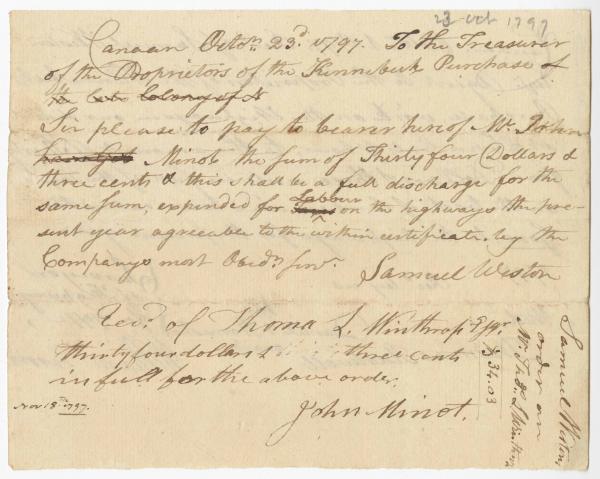 23 Oct 1797
Canaan Octor. 23d. 1797. To the Treasurer
of the Proprietors of the Kennebeck Purchase of
the late Colony of N
Sir please to pay to bearer hereof Mr. John
Minot the sum of Thirty four Dollars &
three cents & this shall be a full discharge for the
same sum, expended for Labour on the highways the pre-
sent year agreeable to the within certificate. by the
Companys most Obedt. Servt.
Samuel Weston
Recd. of Thomas L. Winthrop Esqr.
thirty four dollars & three cents
in full for the above order.
Nov 18th. 1797.
John Minot.
$34.03
Samuel Weston,
order on
Mr. Thos. L Winthrop